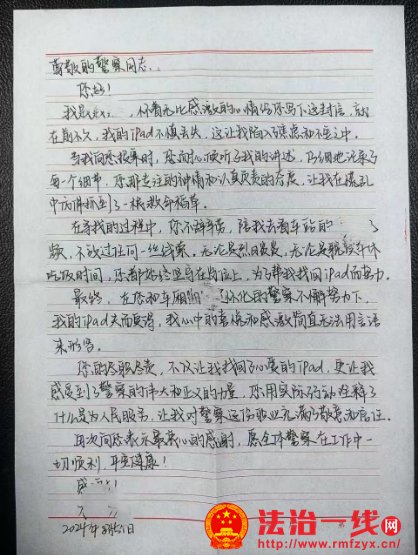 尊敬的警察同志：
您好！
我是xxx，怀着无比感激的心情给您写下这封信，就
在前不久，我的iPad不慎丢失，这让我陷入了焦虑和不安之中。
当我向您报案时，您耐心倾听了我的讲述，仔细地记录了
每个细节，您那专注的神情和认真负责的态度，让我在慌乱
中仿佛抓到了一根救命稻草。
在寻找的过程中，您不辞辛苦，陪我去看车站的
频，不放过任何一丝线索。无论是烈日炎炎，无论是午休
吃饭时间，您都始终坚守在岗位上，为了帮我找回iPad而努力
最终，在您和车厢 怀化的警察不懈努力下，
我的iPad失而复得，我心中的喜悦和感激简直无法用言语
来形容。
您的尽职尽责，不仅让我找回了心爱的iPad，更让我
感受到了警察的伟大和正义的力量，您用实际行动诠释了
什么是为人民服务，让我对警察这份职业充满了敬意和信任。
再次向您表示最衷心的感谢，愿全体警察在工作中一
切顺利，平安健康！
2024年8月5日
法治一线网
www.rmfzyx.cn